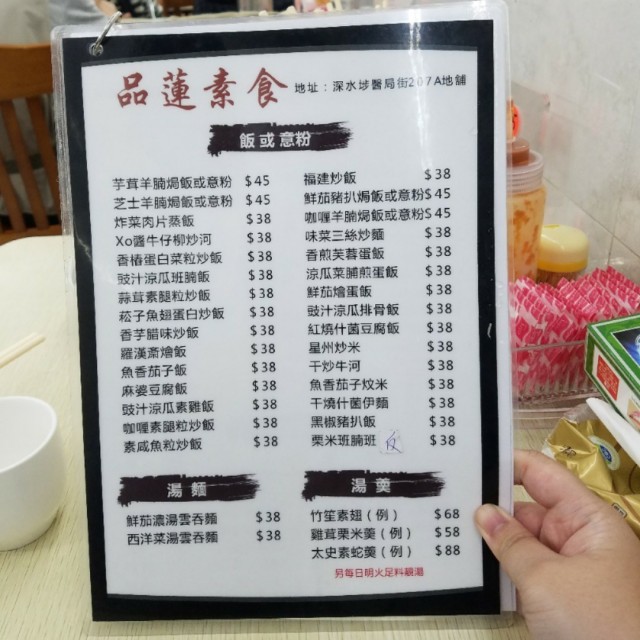 品蓮素食 地址：深水埗醫局街207A地舖
飯或意粉
芋茸羊腩焗飯或意粉 $45
芝士羊腩焗飯或意粉 $45
炸菜肉片蒸飯 $38
Xo醬牛仔柳炒河 $38
香椿蛋白菜粒炒飯 $38
豉汁涼瓜班腩飯 $38
蒜茸素腿粒炒飯 $38
菘子魚翅蛋白炒飯 $38
香芋腊味炒飯 $38
羅漢齋燴飯 $38
魚香茄子飯 $38
麻婆豆腐飯 $38
豉汁涼瓜素雞飯 $38
咖喱素腿粒炒飯 $38
素咸魚粒炒飯 $38
福建炒飯 $38
鮮茄豬扒焗飯或意粉$45
咖喱羊腩焗飯或意粉$45
味菜三絲炒麵 $38
香煎芙蓉蛋飯 $38
涼瓜菜脯煎蛋飯 $38
鮮茄燴蛋飯 $38
豉汁涼瓜排骨飯 $38
紅燒什菌豆腐飯 $38
星州炒米 $38
干炒牛河 $38
魚香茄子炆米 $38
干燒什菌伊麵 $38
黑椒豬扒飯 $38
栗米班腩班 飯 $38
湯麵
鮮茄濃湯雲吞麵 $38
西洋菜湯雲吞麵 $38
湯羹
竹笙素翅（例） $68
雞茸栗米羹（例） $58
太史素蛇羹（例） $88
另每日明火足料靚湯